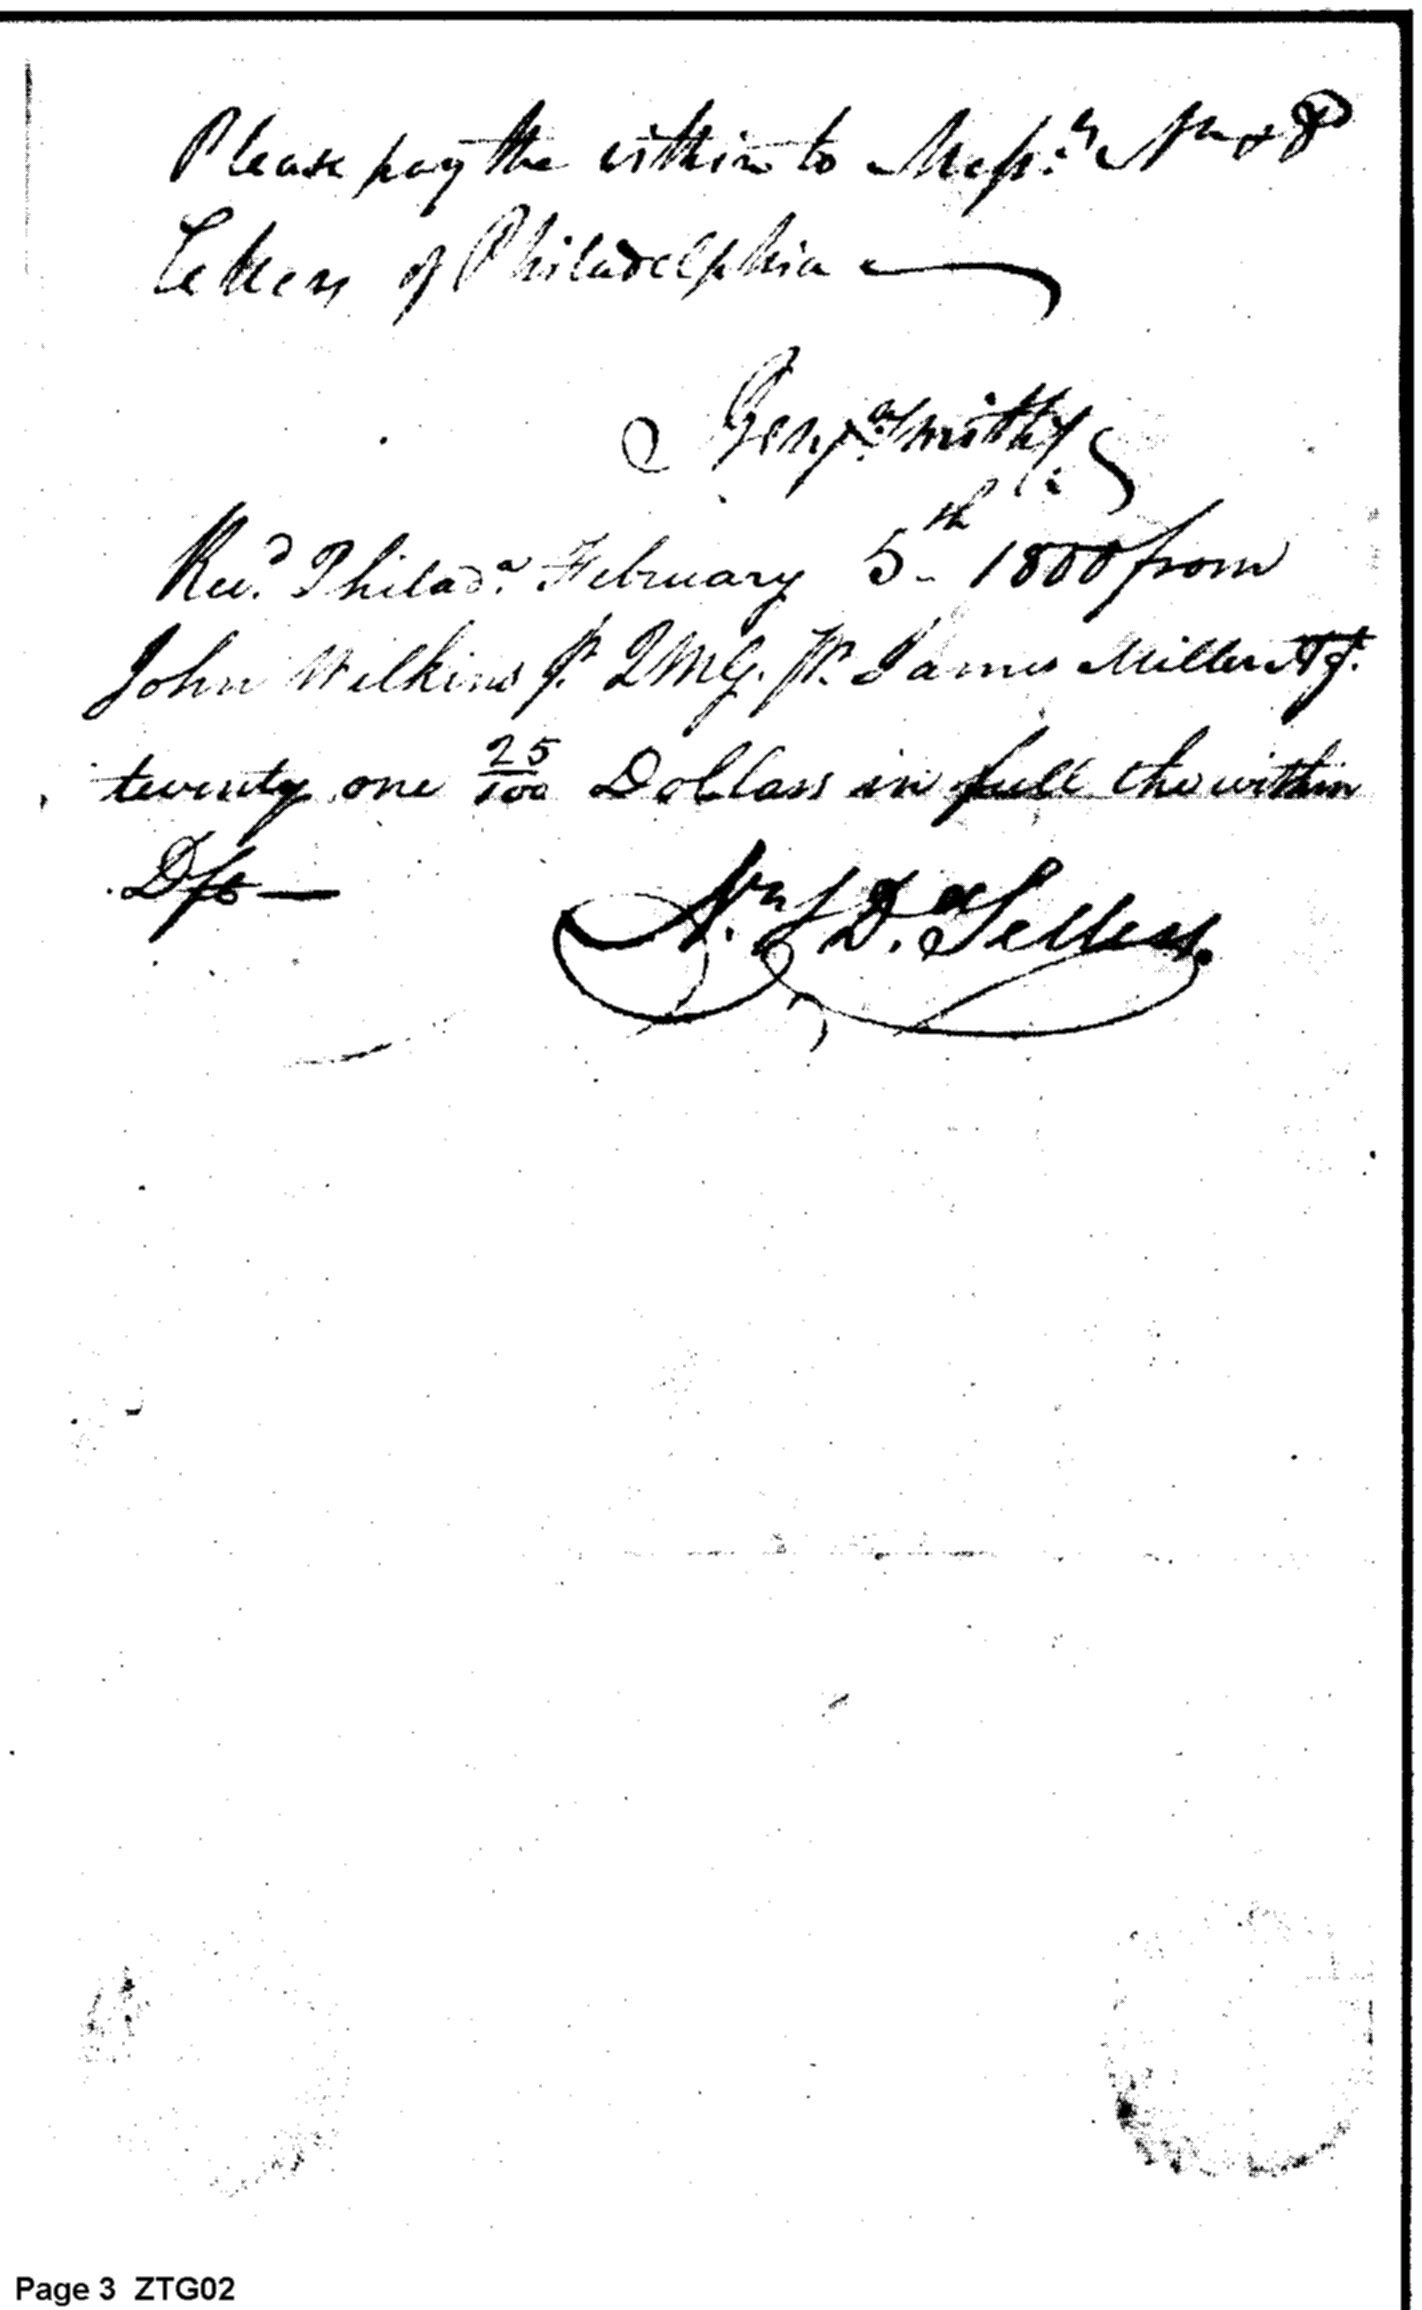 Please pay the within to Messrs. Nn & D
Sellers of Philadelphia
Benjn. Smith
Recd. Philada. February 5th 1800 from
John Wilkins Jr. QMG. pr. James Miller
twenty one 25/100 Dollars in full the within
Dft —
N. & D. Sellers.
Page 3 ZTG02